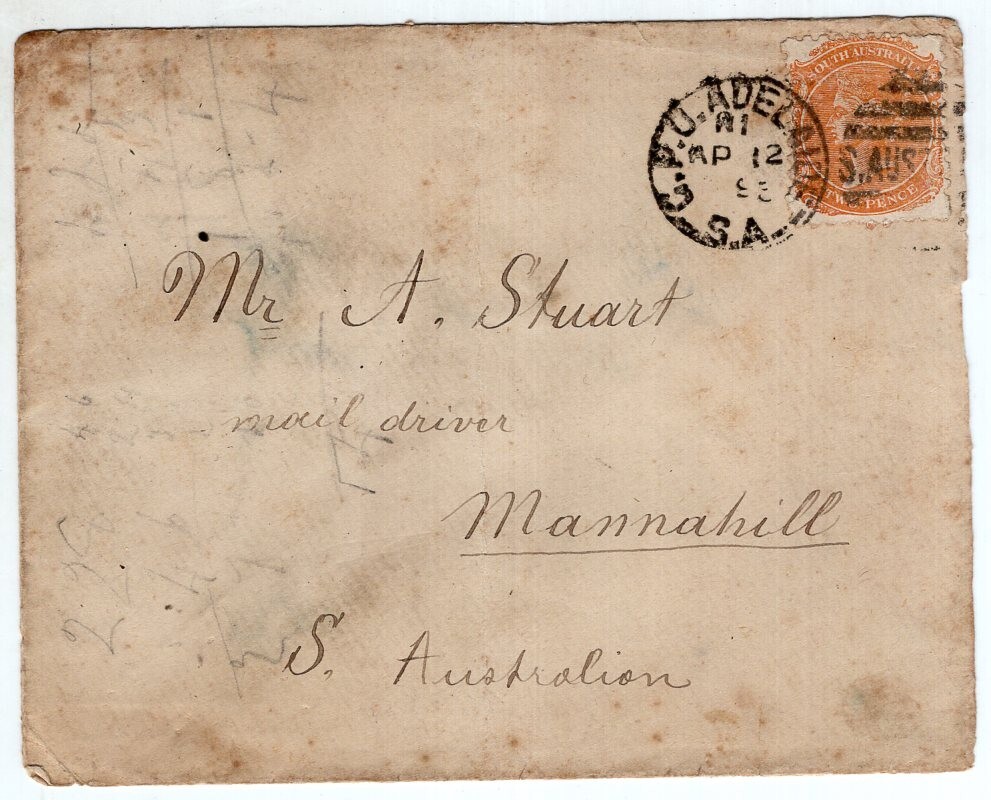 SOUTH AUSTRALIA
TWO PENCE
G.P.O. ADELAIDE
AP 12
S.A.
S. AUS
Mr A. Stuart
mail driver
Mannahill
S. Australian